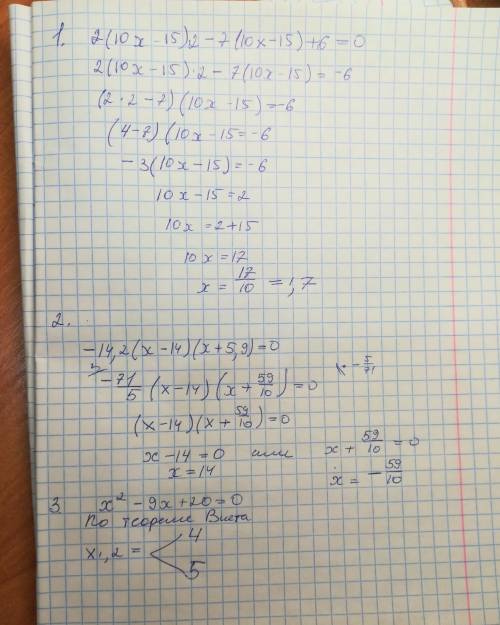 1. 2(10x-15)·2-7(10x-15)+6=0
2(10x-15)·2-7(10x-15)=-6
(2·2-7)(10x-15)=-6
(4-7)(10x-15=-6
-3(10x-15)=-6
10x-15=2
10x=2+15
10x=17
x=17/10=1,7
2.
-14,2(x-14)(x+5,9)=0
-71/5(x-14)(x+59/10)=0 -5/71
(x-14)(x+59/10)=0
x-14=0 или x+59/10=0
x=14 x=-59/10
3 x²-9x+20=0
По теореме Виета
x₁,₂= 4
5